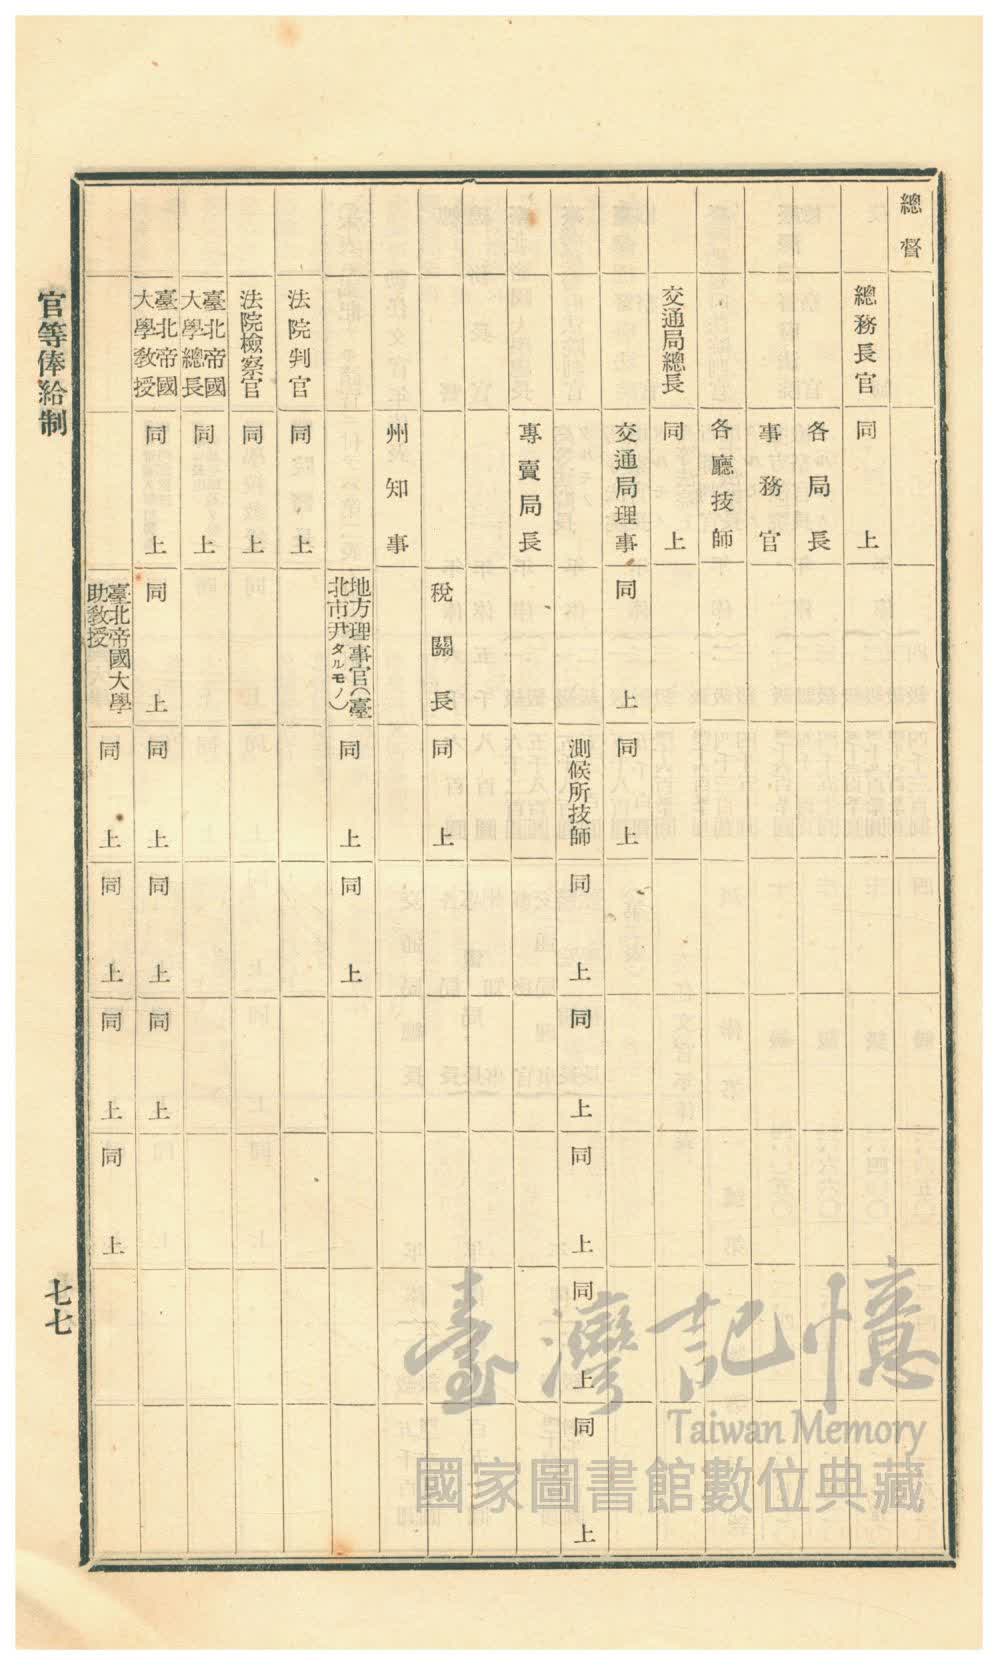 總督
總務長官 同上
各局長
事務官
各廳技師
交通局總長 同上
交通局理事 同上 同上
測候所技師 同上 同上 同上 同上 同上
專賣局長
稅關長 同上
州知事
地方理事官(臺
北市尹タルモノ) 同上 同上
法院判官 同上
法院檢察官 同上
臺北帝國
大學總長 同上
臺北帝國
大學教授 同上 同上 同上 同上 同上
臺北帝國大學
助教授 同上 同上 同上 同上
官等俸給制
七七
臺灣記憶
Taiwan Memory
國家圖書館數位典藏